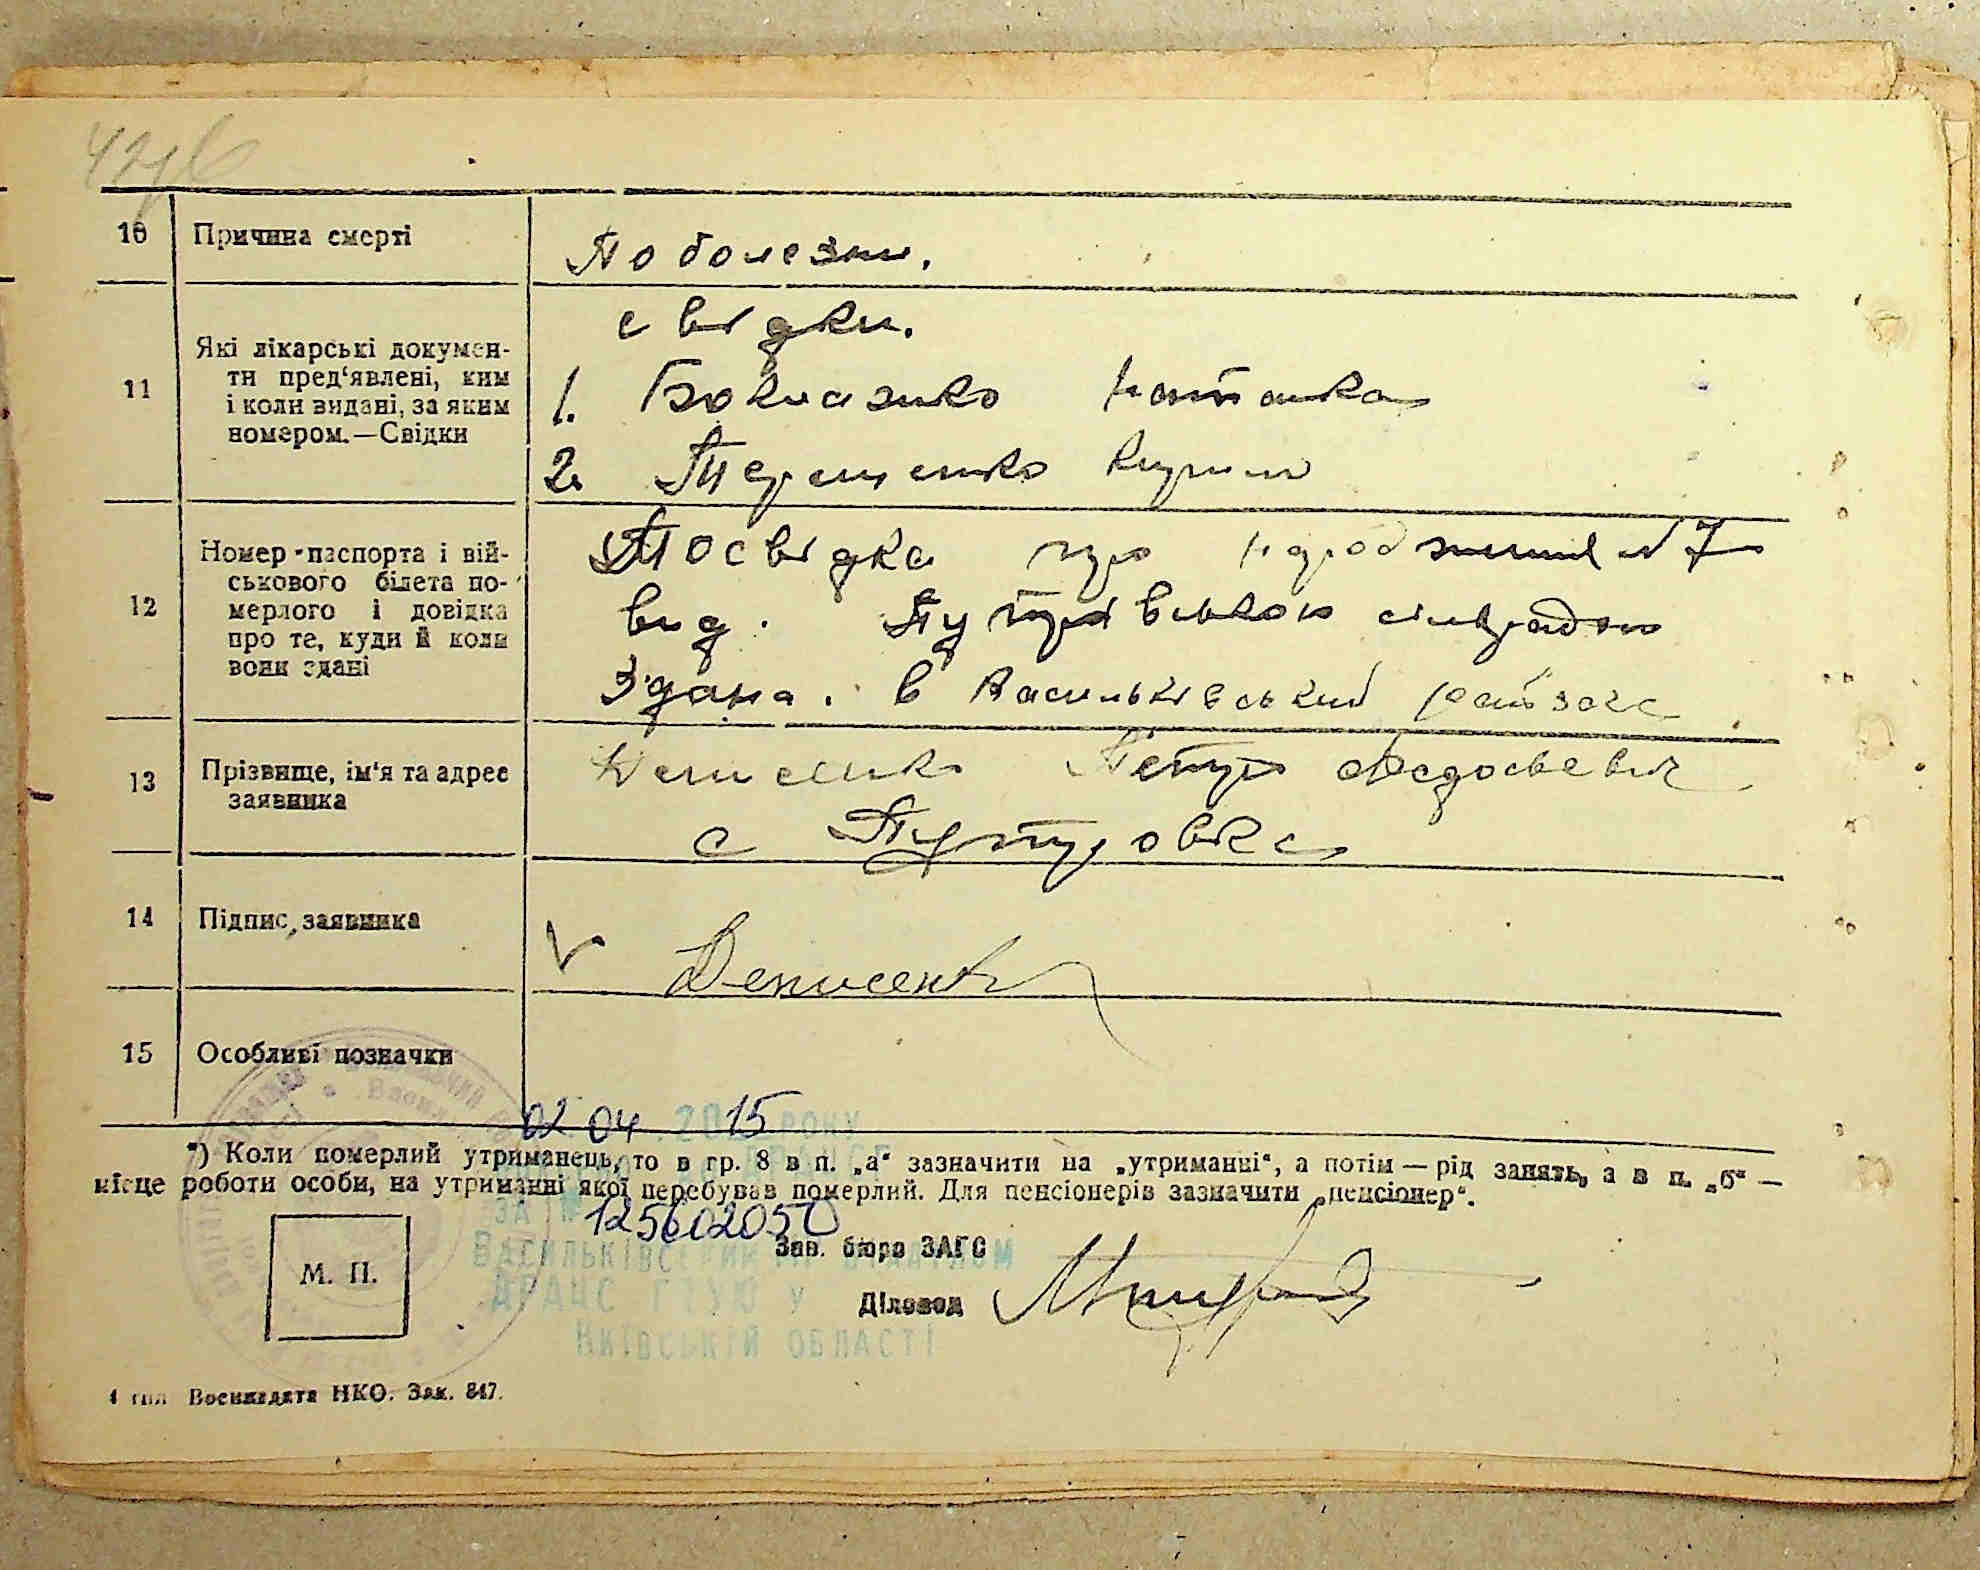 10 Причина смерті
По болезни.
11 Які лікарські докумен-
ти пред'явлені, ким
і коли видані, за яким
номером.—Свідки
свідки.
1. Наталка
2. Терещенко Кирило
12 Номер паспорта і вій-
ськового білета по-
мерлого і довідка
про те, куди й коли
вони здані
Посвідка про народження №7
вид. Путрівською сільрадою
Здана. в Васильківський райзагс
13 Прізвище, ім'я та адрес
заявника
Денисенко Петро Федосьевич
с Путровка
14 Підпис заявника
V Денисенко
15 Особливі позначки
02 04 .2015 РОКУ
*) Коли померлий утриманець, то в гр. 8 в п. „а“ зазначити на „утриманні“, а потім — рід занять, а в п. „б“ —
місце роботи особи, на утриманні якої перебував померлий. Для пенсіонерів зазначити „пенсіонер“.
ЗА №
ВАСИЛЬКІВСЬКИМ МР ВІДДІЛОМ
Зав. бюро ЗАГС
М. П.
ДРАЦС ГТУЮ У
Діловод
КИЇВСЬКІЙ ОБЛАСТІ
4 тип. Воениздата НКО. Зак. 847.